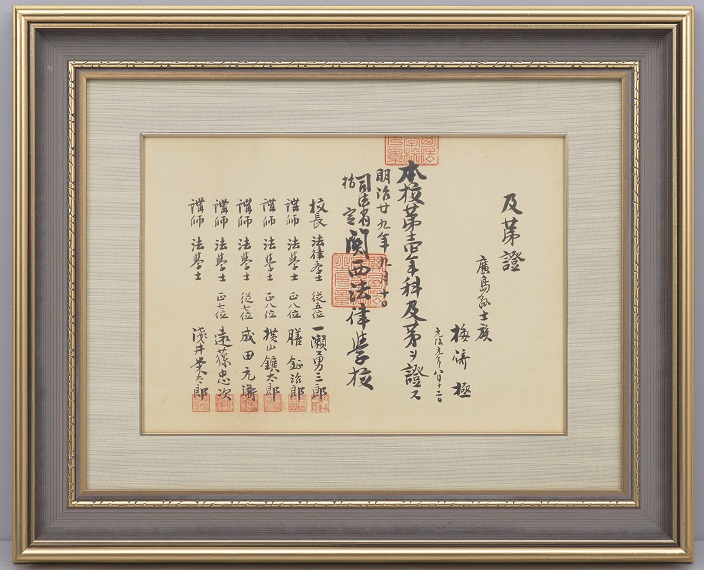 及第證
廣島縣士族
梅濟極
元治元年八月十二日
本校第壱年科及第ヲ證ス
明治廿九年九月十日
司法省
指定
関西法律學校
校長 法律學士 従五位 一瀬勇三郎
講師 法學士 正八位 膳鉦治郎
講師 法學士 正八位 横山鑛太郎
講師 法學士 従七位 成田元衛
講師 法學士 正七位 遠藤忠次
講師 法學士 淺井栄太郎